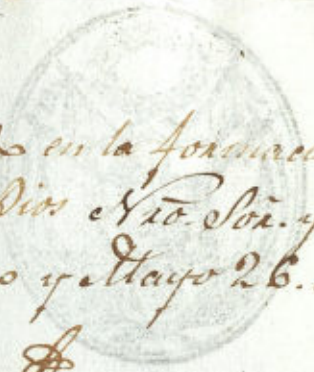 en la formaci
Dios Nrõ. Sor̃. y
o y Mayo 26.